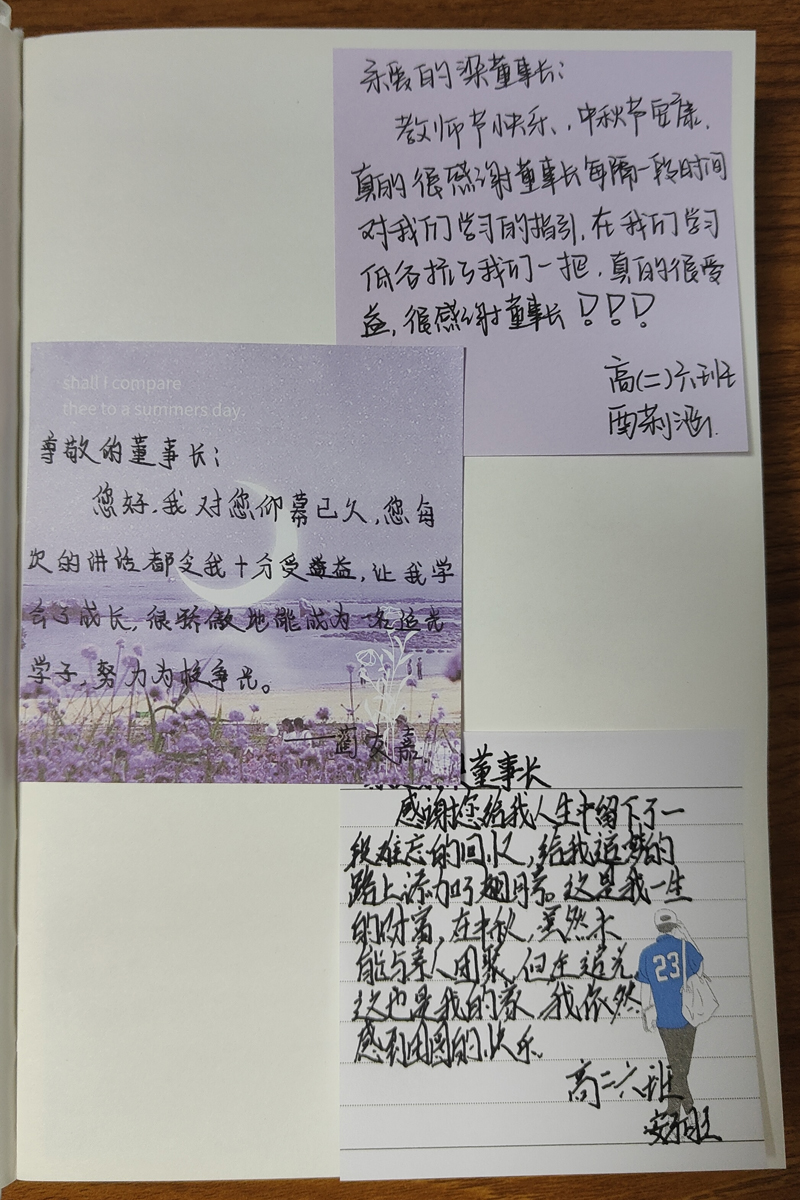 亲爱的梁董事长：
教师节快乐、，中秋节安康，
真的很感谢董事长每隔一段时间
对我们学习的指引，在我们学习
低谷拉了我们一把，真的很受
益，很感谢董事长！！！
高(二)六班
shall I compare
thee to a summers day.
尊敬的董事长：
您好，我对您仰幕已久，您每
次的讲话都令我十分受益益，让我学
会了成长，很骄傲地能成为一名追光
学子，努力为校争光。
——蔺友嘉
董事长
感谢您给我人生中留下了一
段难忘的回忆，给我追梦的
路上添加了翅膀。这是我一生
的财富，在中秋，虽然不
能与亲人团聚，但在追光，
这也是我的家，我依然
感到团圆的快乐。
23
高二六班